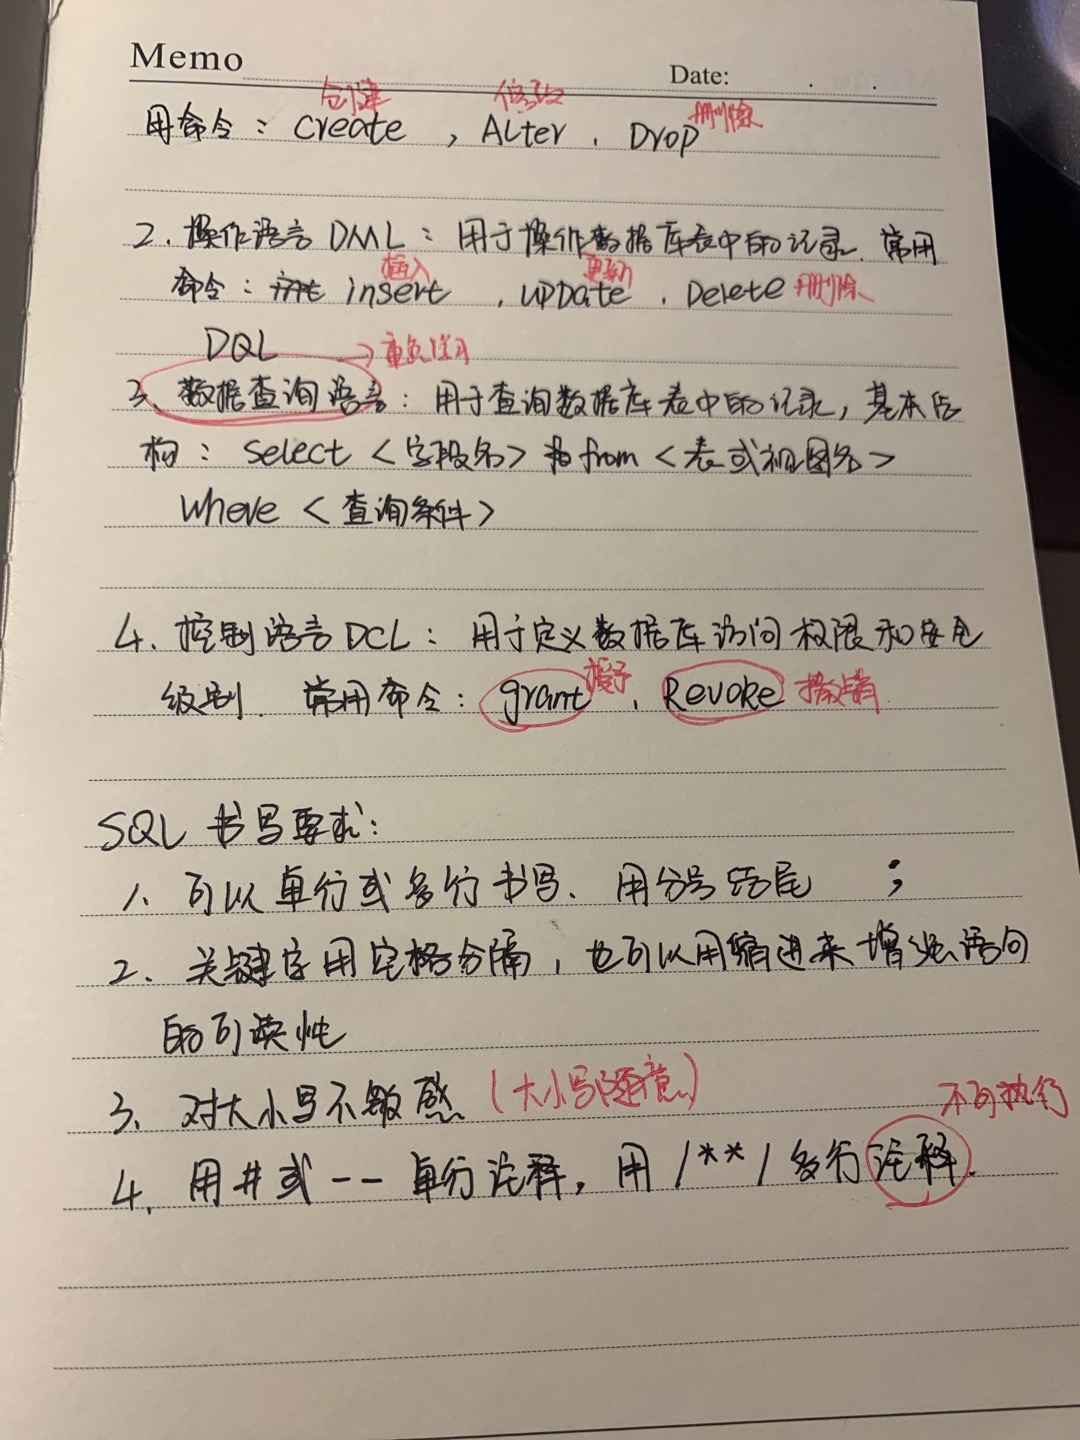 Memo
Date:
创建 修改 删除
用命令：create ，Alter 、Drop
2、操作语言 DML：用于操作数据库表中的记录. 常用
插入 更新
命令： insert ，UPDate 、Delete 删除
DQL → 重点学习
3、数据查询语言：用于查询数据库表中的记录，基本结
构：select <字段名> from <表或视图名>
where <查询条件>
4、控制语言 DCL：用于定义数据库访问权限和安全
级别. 常用命令：grant 授予 、Revoke 撤销
SQL 书写要求：
1、可以单行或多行书写、用分号结尾 ；
2、关键字用空格分隔，也可以用缩进来增强语句
的可读性
3、对大小写不敏感 (大小写随意)
不可执行
4、用#或-- 单行注释，用 /**/ 多行注释.